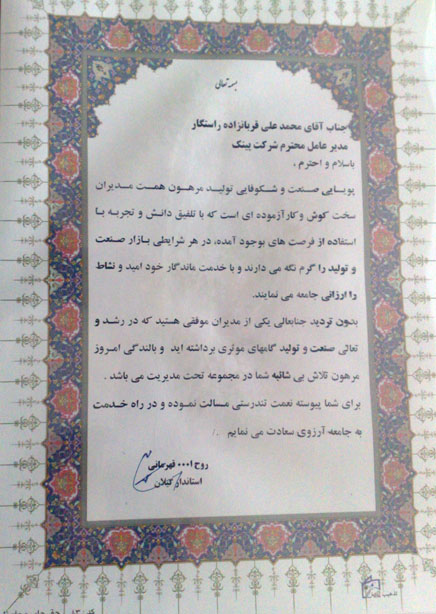 بسمه تعالی
جناب آقای محمد علی قربانزاده راستگار
مدیر عامل محترم شرکت پینک
باسلام و احترم ،
پویایی صنعت و شکوفایی تولید مرهون همت مدیران
سخت کوش وکارآزموده ای است که با تلفیق دانش و تجربه با
استفاده از فرصت های بوجود آمده، در هر شرایطی بازار صنعت
و تولید را گرم نگه می دارند و با خدمت ماندگار خود امید و نشاط
را ارزانی جامعه می نمایند.
بدون تردید جنابعالی یکی از مدیران موفقی هستید که در رشد و
تعالی صنعت و تولید گامهای موثری برداشته اید و بالندگی امروز
مرهون تلاش بی شائبه شما در مجموعه تحت مدیریت می باشد .
برای شما پیوسته نعمت تندرستی مسالت نموده و در راه خدمت
به جامعه آرزوی سعادت می نمایم ./
روح ا... قهرمانی
استاندار گیلان